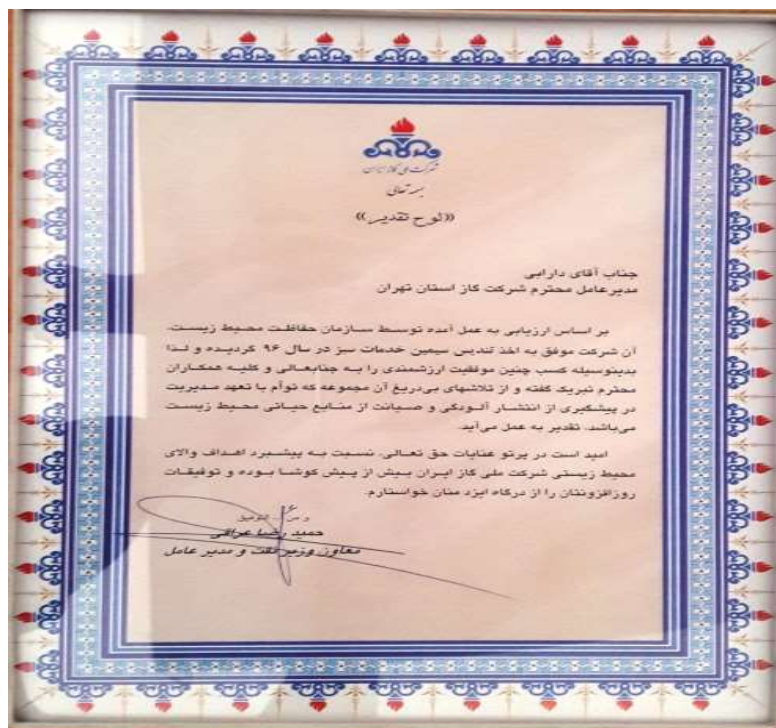 شرکت ملی گاز ایران
بسمه تعالی
«لوح تقدیر»
جناب آقای دارابی
مدیرعامل محترم شرکت گاز استان تهران
بر اساس ارزیابی به عمل آمده توسط سازمان حفاظت محیط زیست،
آن شرکت موفق به اخذ تندیس سیمین خدمات سبز در سال ۹۶ گردیده و لذا
بدینوسیله کسب چنین موفقیت ارزشمندی را به جنابعالی و کلیه همکاران
محترم تبریک گفته و از تلاشهای بی‌دریغ آن مجموعه که توأم با تعهد مدیریت
در پیشگیری از انتشار آلودگی و صیانت از منابع حیاتی محیط زیست
می‌باشد، تقدیر به عمل می‌آید.
امید است در پرتو عنایات حق تعالی، نسبت به پیشبرد اهداف والای
محیط زیستی شرکت ملی گاز ایران بیش از پیش کوشا بوده و توفیقات
روزافزونتان را از درگاه ایزد منان خواستارم.
و من التوفیق
حمید رضا عراقی
معاون وزیر نفت و مدیر عامل